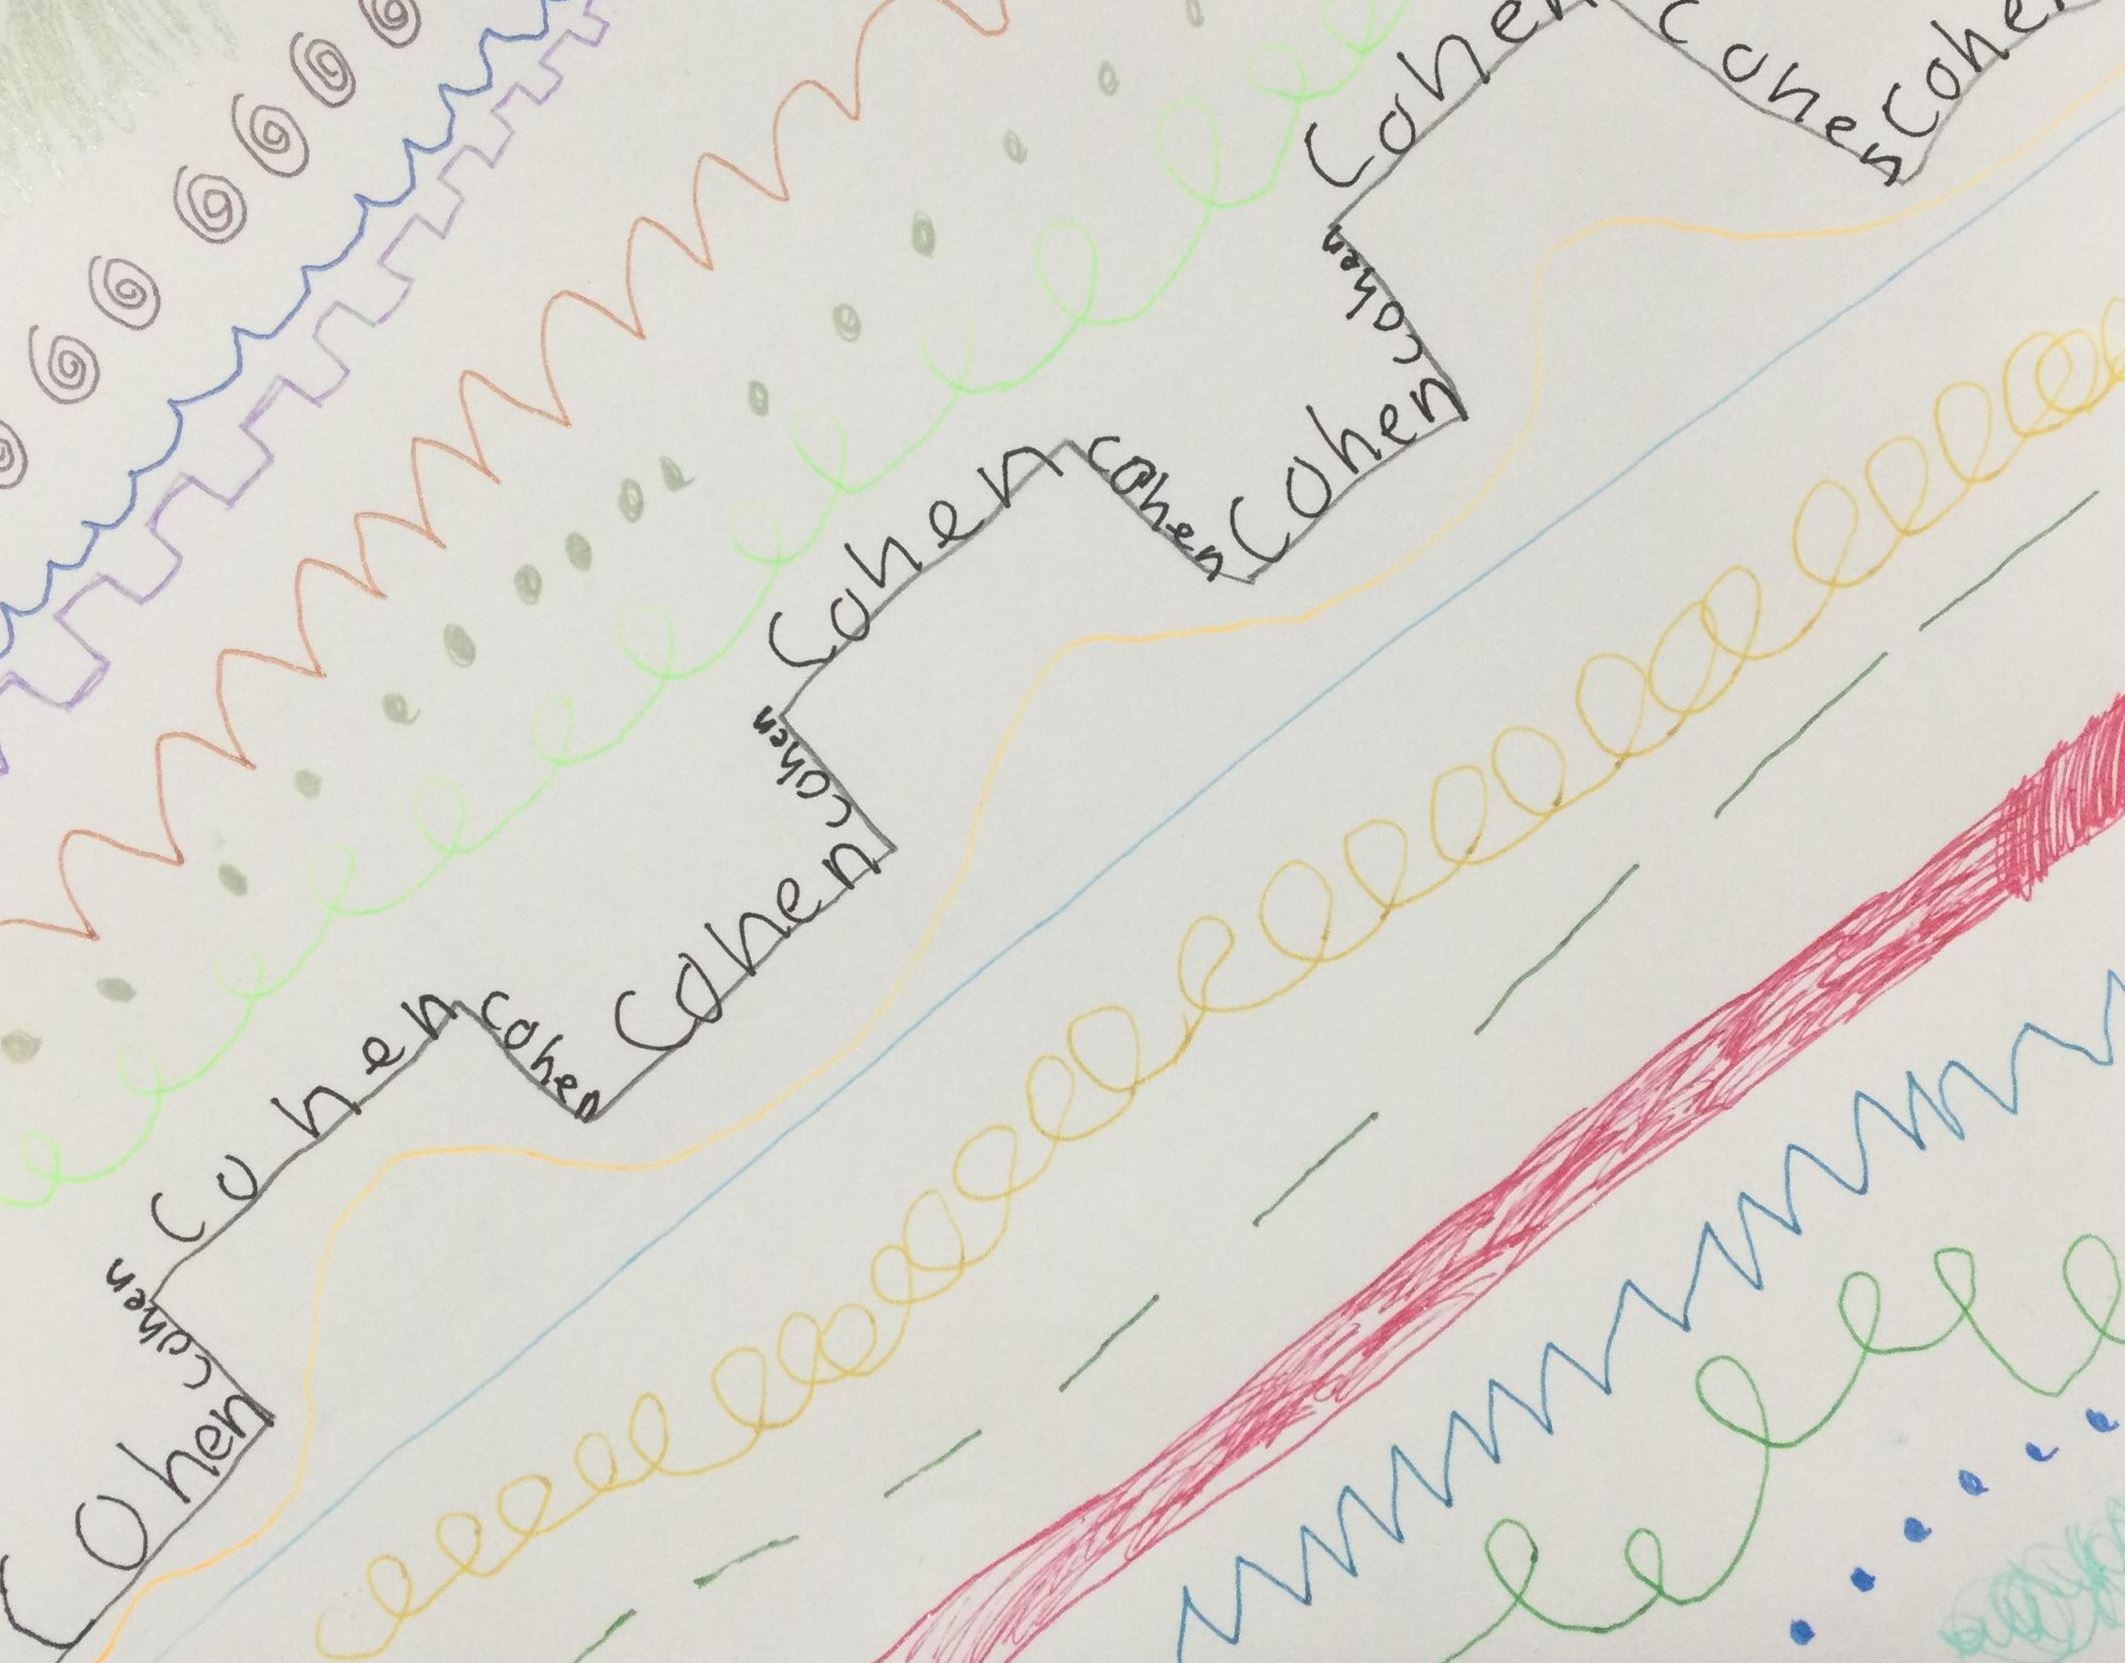 Cohen
cohen
Cohen
cohen
Cohen
cohen
Cohen
cohen
Cohen
cohen
Cohen
cohen
Cohen